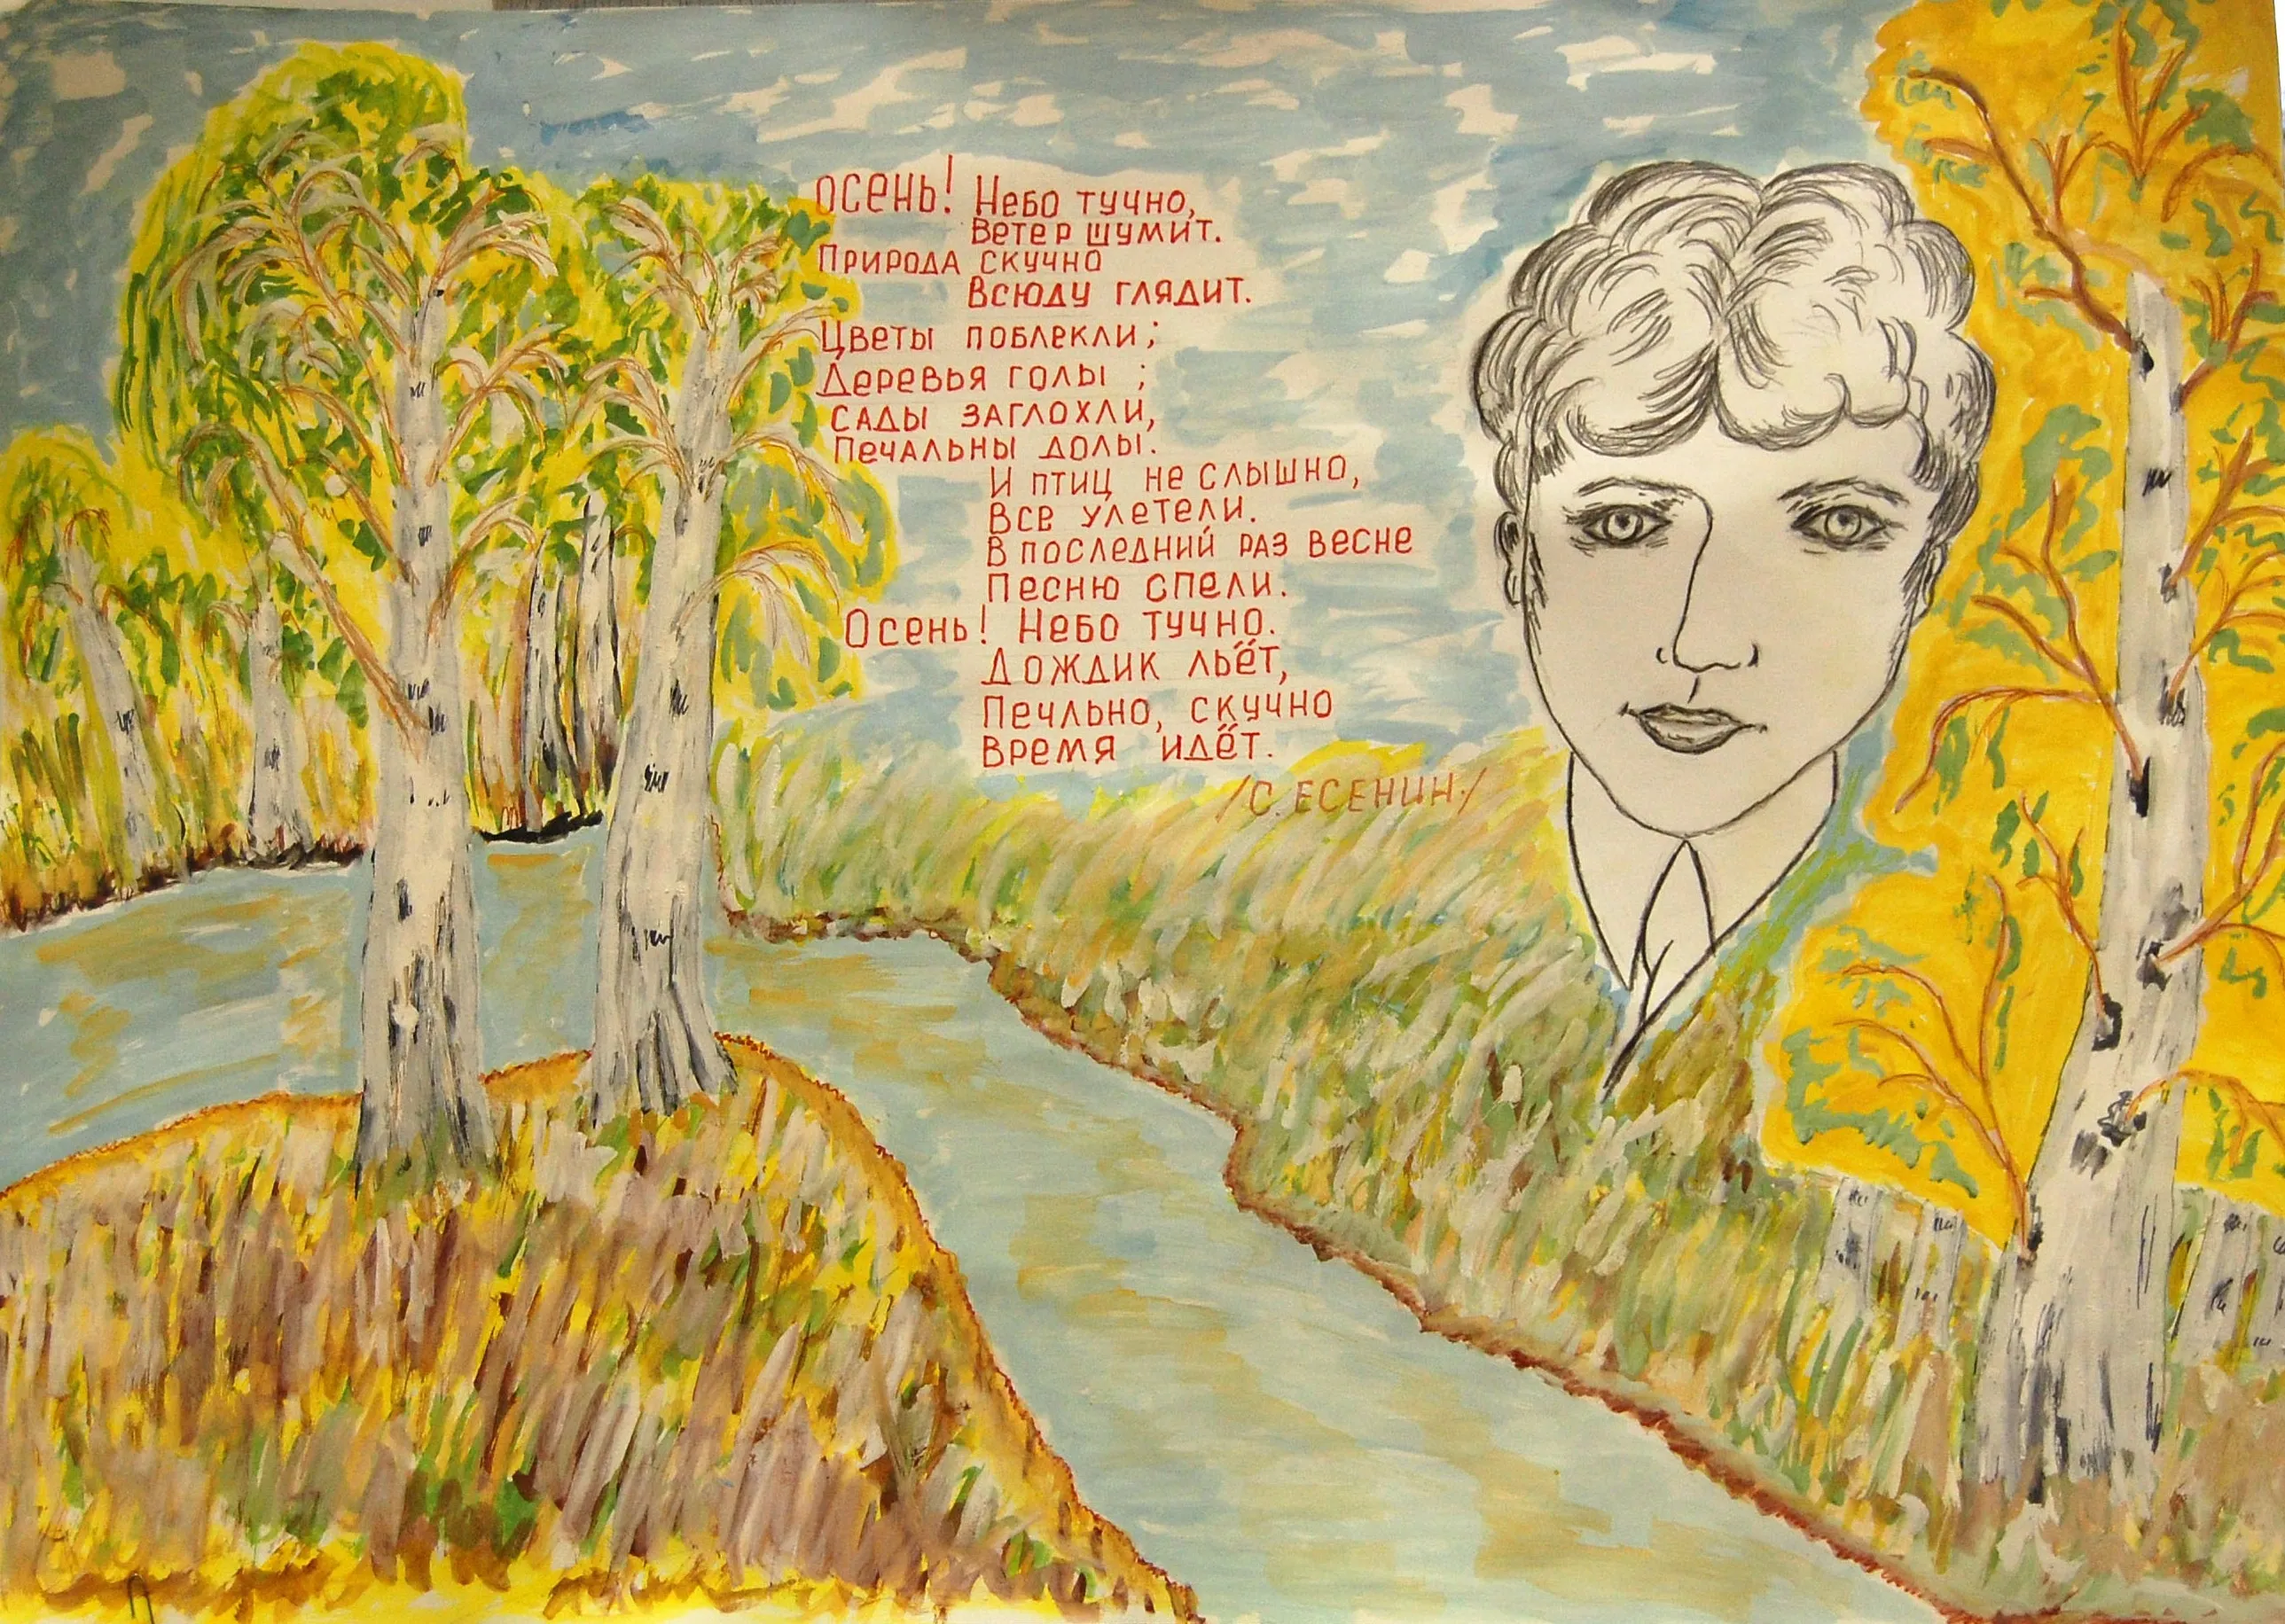 Осень! Небо тучно,
Ветер шумит.
Природа скучно
Всюду глядит.
Цветы поблекли;
Деревья голы;
Сады заглохли,
Печальны долы.
И птиц не слышно,
Все улетели.
В последний раз весне
Песню спели.
Осень! Небо тучно.
Дождик льёт,
Печльно, скучно
Время идёт.
/С. Есенин./